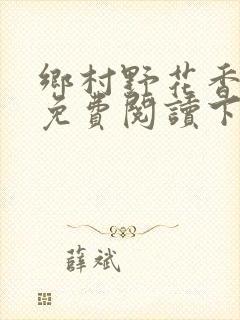 鄉村野花香
免費閱讀下
薛斌